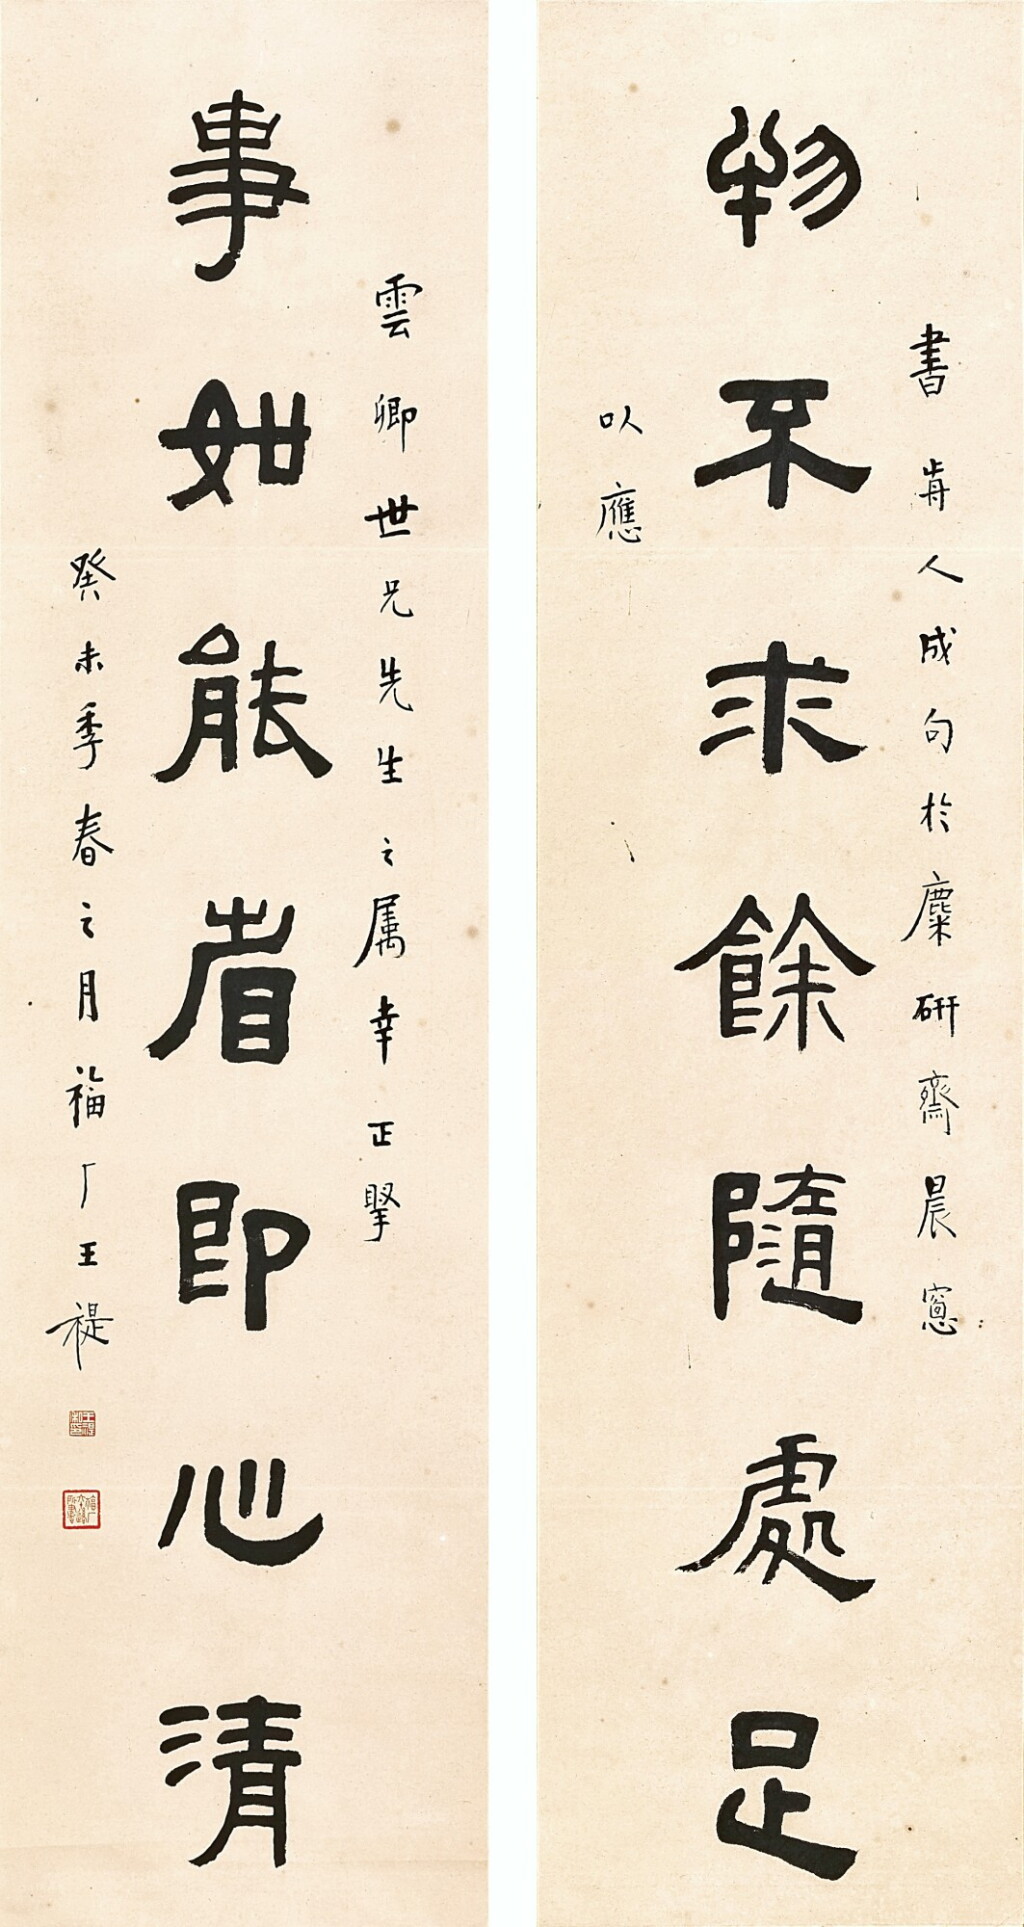 物不求餘隨處足
書歬人成句於麋研齋晨窻
以應
事如能省即心清
雲卿世兄先生之属幸正掔
癸未季春之月福厂王禔